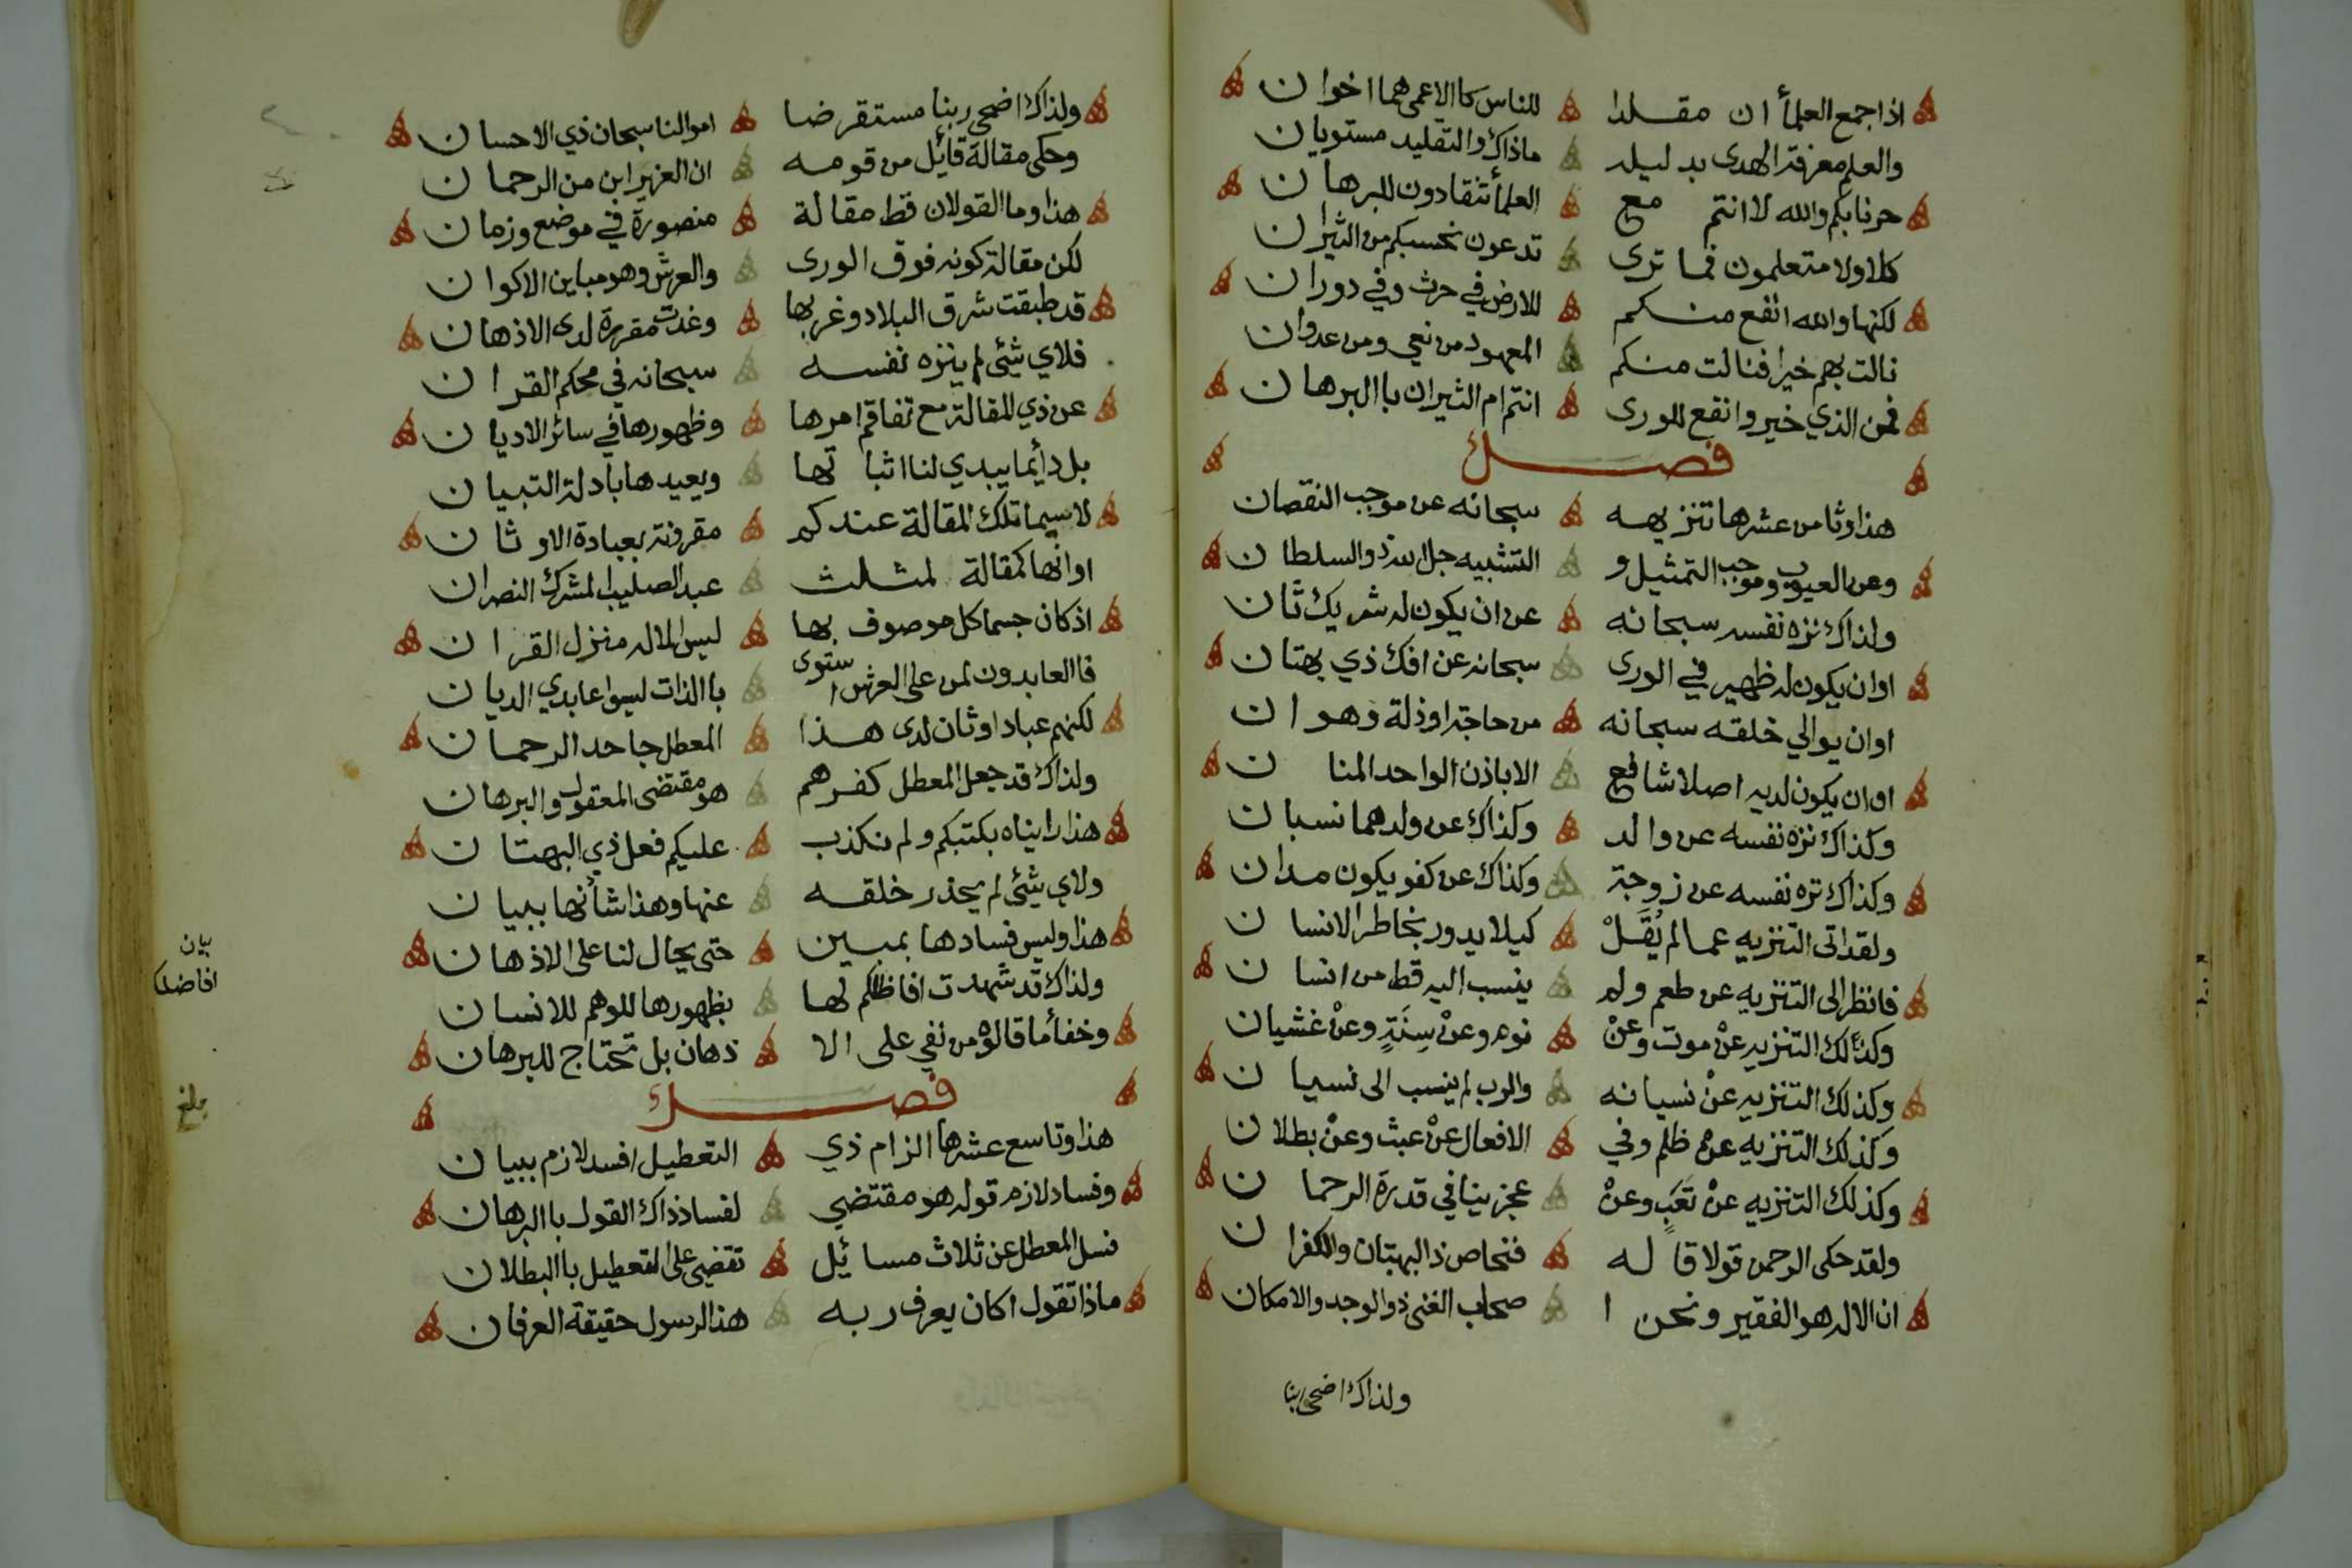 اذا جمع العلمأ ان مقلدا للناس كا الاعمى هما اخوان
والعلم معرفة الهدى بدليله ماذاك والتقليد مستويان
حرنا بكم والله لا انتم مع العلمأ تنقادون للبرهان
كلا ولا متعلمون فما ترى تدعون نحسبكم من الثيران
لكنها والله انفع منكم للارض في حرث وفي دوران
نالت بهم خيرا فنالت منكم المعهود من نعي ومن عدوان
فمن الذي خير وانفع للورى انتم ام الثيران با البرهان
فصل
هذا وثامن عشرها تنزيهه سبحانه عن موجب النقصان
وعن العيوب وموجب التمثيل و التشبيه جل الله ذو السلطان
ولذاك نزه نفسه سبحانه عن ان يكون له شريك ثان
او ان يكون له ظهير في الورى سبحانه عن افك ذي بهتان
او ان يوالي خلقه سبحانه من حاجة او ذلة وهوان
او ان يكون لديه اصلا شافع الا باذن الواحد المنان
وكذاك نزه نفسه عن والد وكذاك عن ولد هما نسبان
وكذاك نزه نفسه عن زوجة وكذاك عن كفو يكون مدان
ولقد اتى التنزيه عما لم يُقَلْ كيلا يدور بخاطر الانسان
فانظر الى التنزيه عن طعم ولم ينسب اليه قط من انسان
وكذلك التنزيه عنْ موت وعنْ نوم وعنْ سِنَةٍ وعنْ غشيان
وكذلك التنزيه عنْ نسيانه والرب لم ينسب الى نسيان
وكذلك التنزيه عنْ ظلم وفي الافعال عنْ عبث وعنْ بطلان
وكذلك التنزيه عنْ تَعَبٍ وعنْ عجز ينافي قدرة الرحمان
ولقد حكى الرحمن قولا قاله فنحاص ذ البهتان والكفران
ان الاله هو الفقير ونحن ا صحاب الغنى ذو الوجد والامكان
ولذاك اضحى ربنا
ولذاك اضحى ربنا مستقرضا اموالنا سبحان ذي الاحسان
وحكى مقالة قائل من قومه ان العزير ابن من الرحمان
هذا وما القولان قط مقالة منصورة في موضع وزمان
لكن مقالة كونه فوق الورى والعرش وهو مباين الاكوان
قد طبقت شرق البلاد وغربها وغدت مقررة لدى الاذهان
فلاي شئى لم ينزه نفسه سبحانه في محكم القران
عن ذي المقالة مع تفاقم امرها وظهورها في سائر الاديان
بل دأيما يبدي لنا اثباتها ويعيدها بادلة التبيان
لا سيما تلك المقالة عندكم مقرونة بعبادة الاوثان
او انها كمقالة لمثلث عبد الصليب المشرك النصران
اذ كان جسما كل موصوف بها ليس الاله منزل القران
فا العابدون لمن على العرش استوى با الذات ليسوا عابدي الديان
لكنهم عباد اوثان لدى هذا المعطل جاحد الرحمان
ولذاك قد جعل المعطل كفرهم هو مقتضى المعقول والبرهان
هذا راينا ه بكتبكم ولم نكذب عليكم فعل ذي البهتان
ولاي شئى لم يحذر خلقه عنها وهذا شأنها ببيان
هذا وليس فسادها بمبين حتى يحال لنا على الاذهان
ولذاك قد شهدت افاظلكم لها بظهورها للوهم للانسان
وخفأ ما قالوه من نفي على الا ذهان بل تحتاج للبرهان
بيان
افاضلكم
فصل
بلغ
هذا وتاسع عشرها الزام ذي التعطيل افسد لازم ببيان
وفساد لازم قوله هو مقتضي لفساد ذاك القول با البرهان
فسل المعطل عن ثلاث مسائيل تقضي على التعطيل با البطلان
ماذا تقول اكان يعرف ربه هذ الرسول حقيقة العرفان